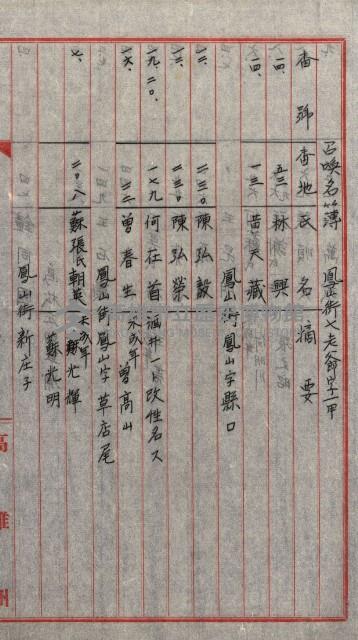 召喚名簿 鳳山街七老爺字一甲
番號 番地 氏名 摘要
一四、 五三 林興
一四、 一三 黃天藏
鳳山街鳳山字縣口
一一、 二三〇 陳弘毅
一三、 二三〇 陳弘榮
一九、二〇、 一七九 何在首 涵井一ト改性名ス
一六、 二二 曾春生 未成年 曾高山
鳳山街鳳山字草店尾
七、 二〇八 蘇張氏朝英 未成年 蘇光輝 蘇光明
鳳山街新庄子
高雄州